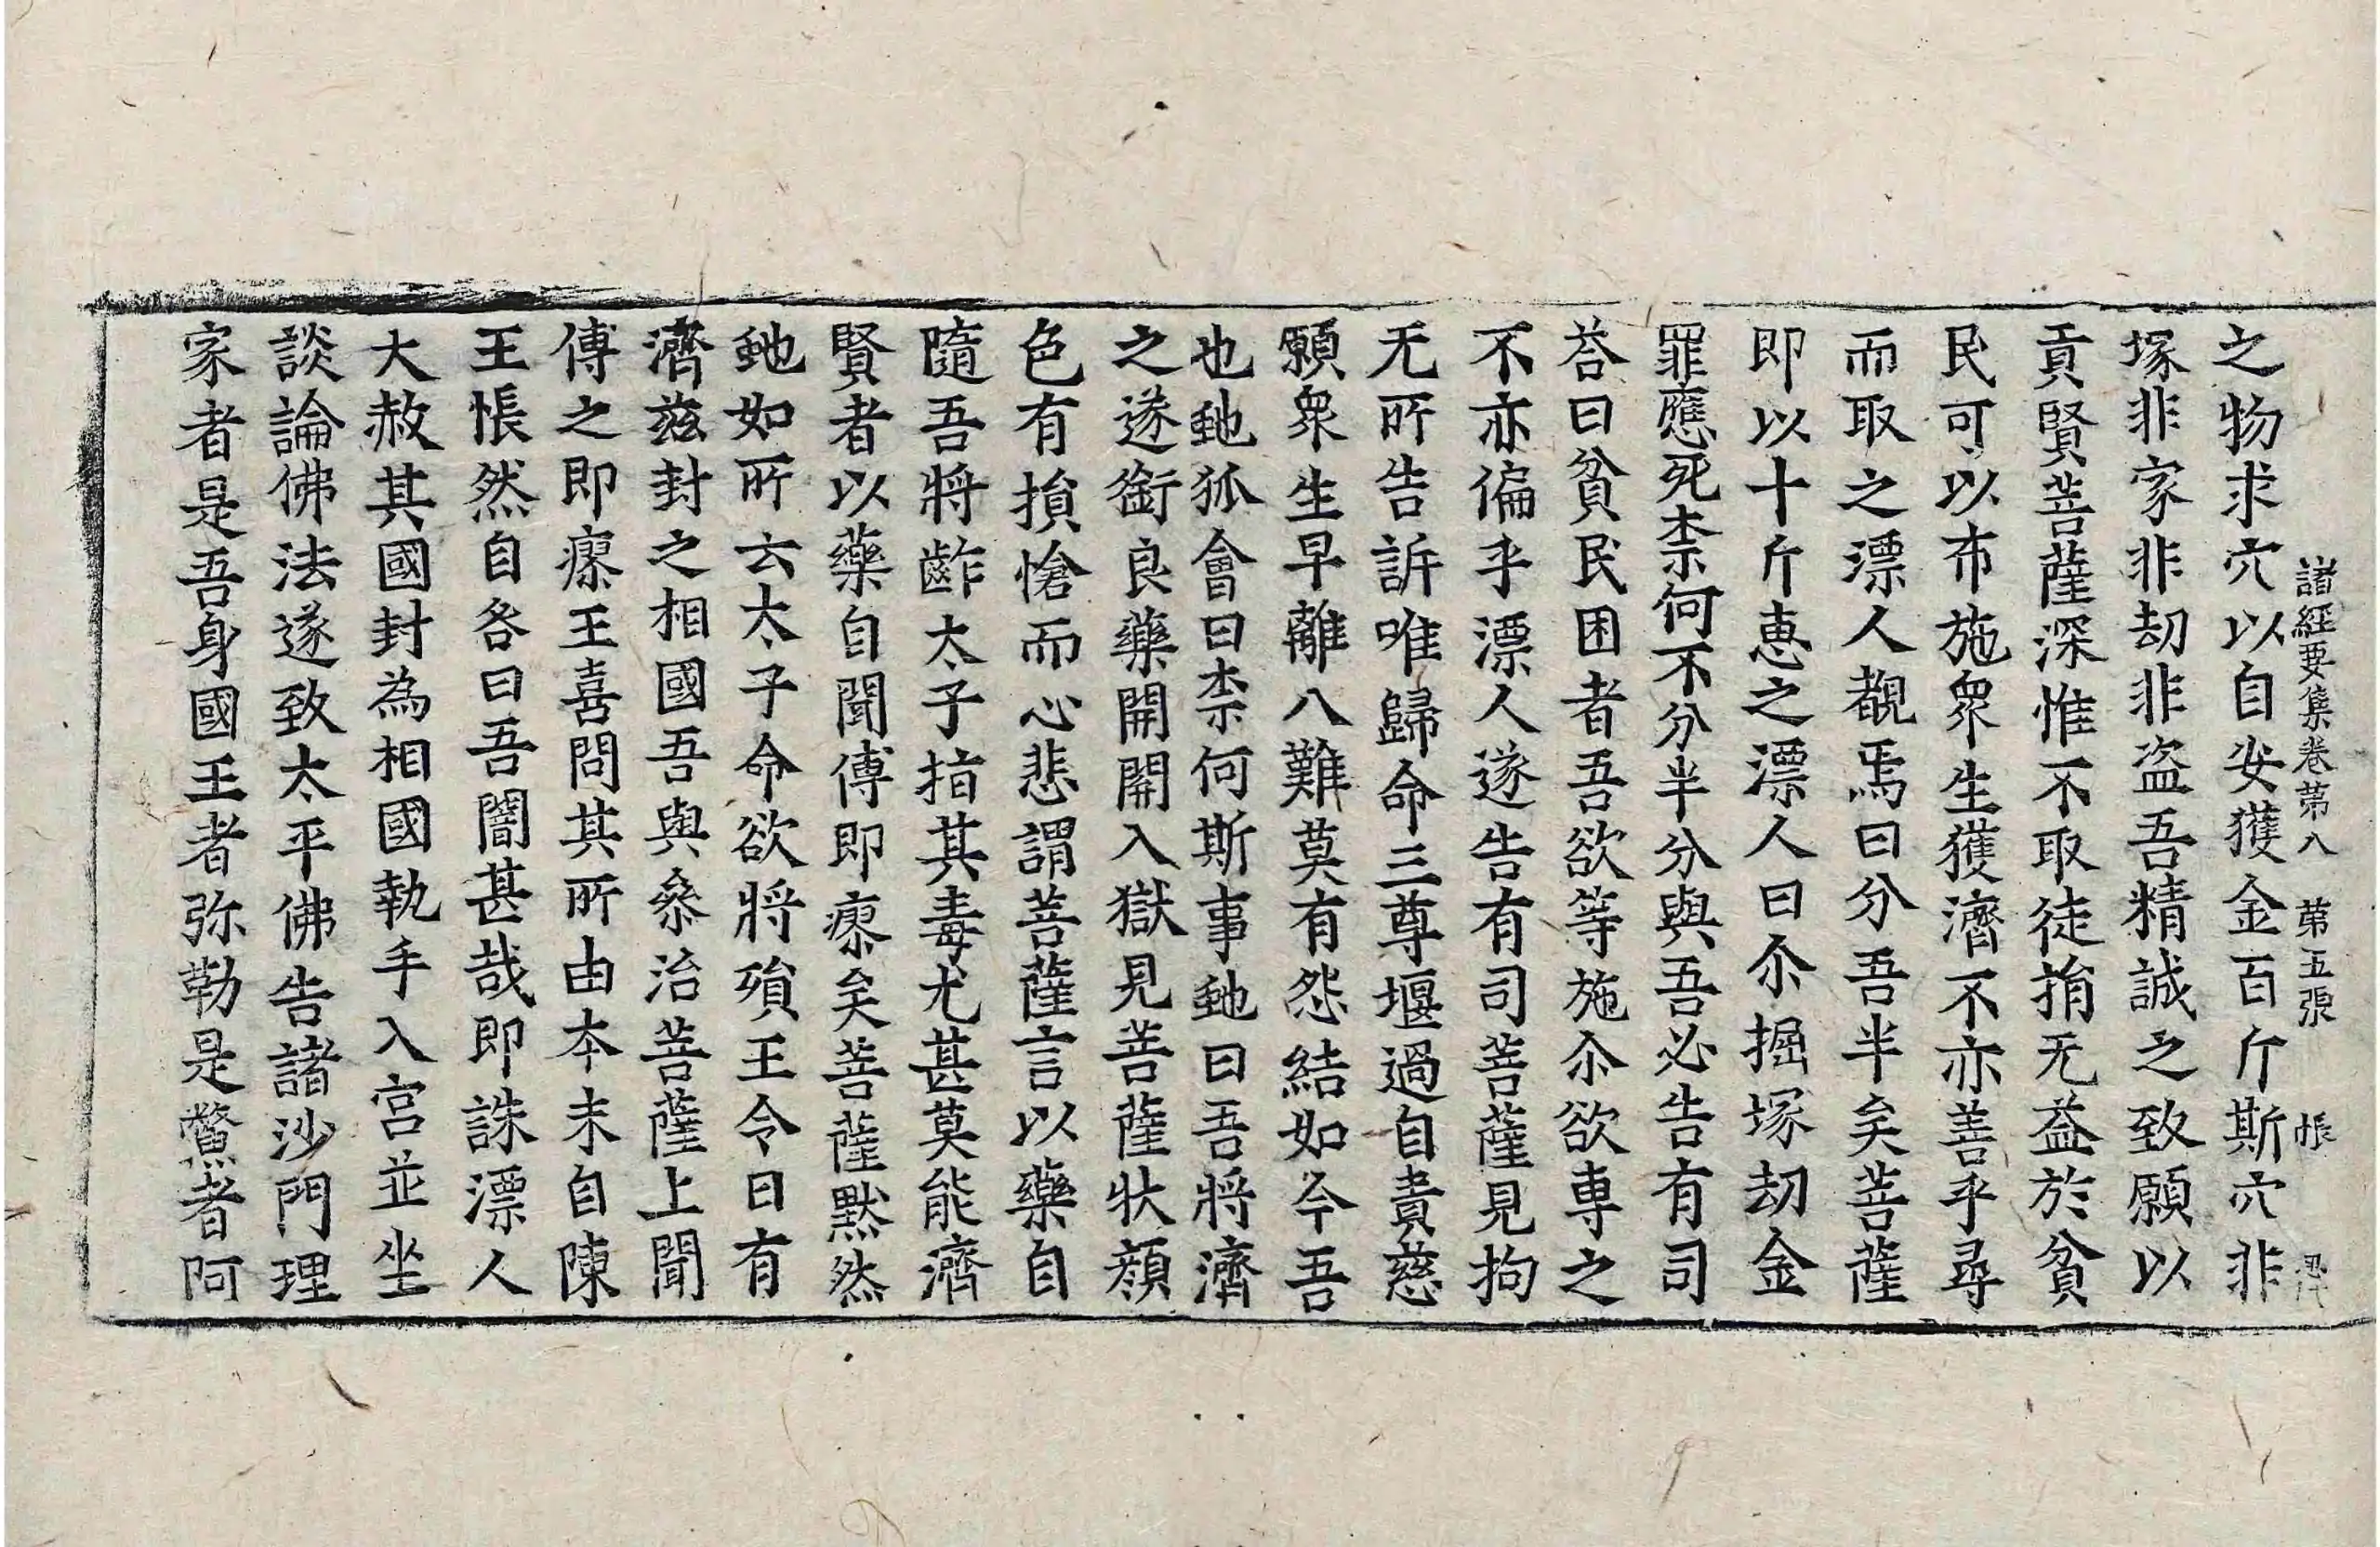 諸經要集卷第八　第五張　悵
之物求穴以自安獲金百斤斯穴非
塚非家非劫非盗吾精誠之致願以
貢賢菩薩深惟不取徒捐无益於貧
民可以布施衆生獲濟不亦善乎尋
而取之漂人覩焉曰分吾半矣菩薩
即以十斤恵之漂人曰尒掘塚劫金
罪應死柰何不分半分與吾必告有司
荅曰貧民困者吾欲等施尒欲專之
不亦偏乎漂人遂告有司菩薩見拘
无所告訴唯歸命三尊堰過自責慈
願衆生早離八難莫有怨結如今吾
也虵狐會曰柰何斯事虵曰吾將濟
之遂銜良藥開開入獄見菩薩狀顔
色有損愴而心悲謂菩薩言以藥自
隨吾將齚太子指其毒尤甚莫能濟
賢者以藥自聞傅即瘳矣菩薩黙然
虵如所云太子命欲將殞王令曰有
濟茲封之相國吾與叅治菩薩上聞
傅之即瘳王喜問其所由本末自陳
王悵然自咎曰吾闇甚哉即誅漂人
大赦其國封為相國執手入宮並坐
談論佛法遂致太平佛告諸沙門理
家者是吾身國王者弥勒是鱉者阿